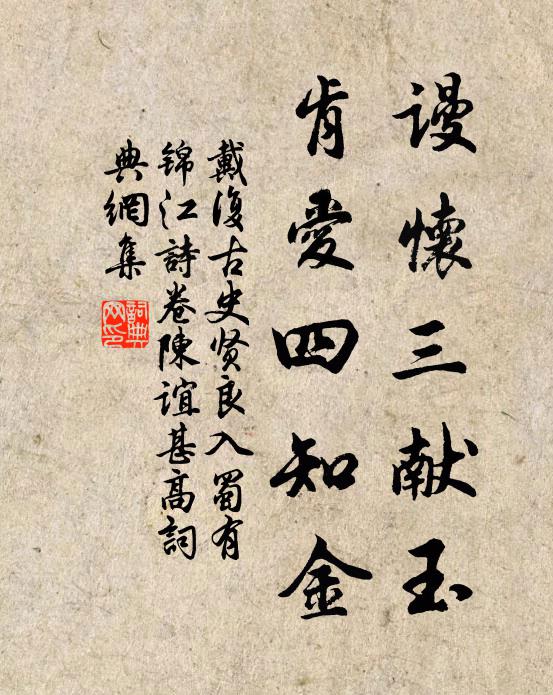 謾懷三献玉
肯愛四知金
戴復古史贤良入蜀有
锦江詩卷陳誼甚高詞
典網集
詞典
网印